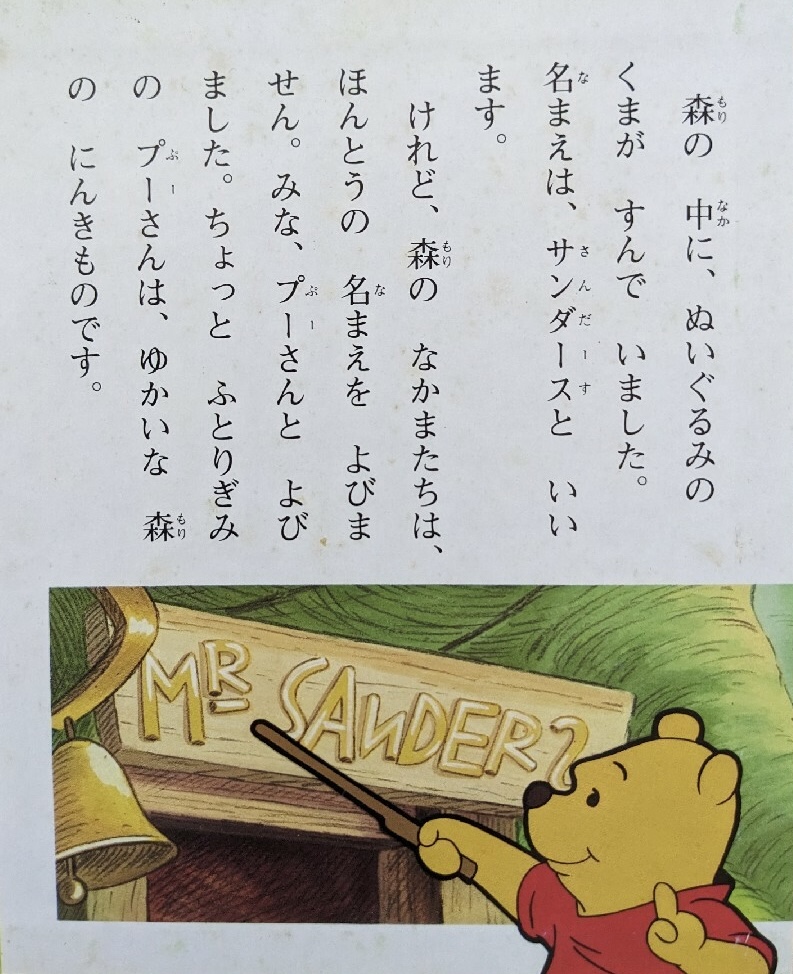 森の 中に、ぬいぐるみの
くまが すんで いました。
名まえは、サンダースと いい
ます。
けれど、森の なかまたちは、
ほんとうの 名まえを よびま
せん。みな、プーさんと よび
ました。ちょっと ふとりぎみ
の プーさんは、ゆかいな 森
の にんきものです。
MR SANDERS